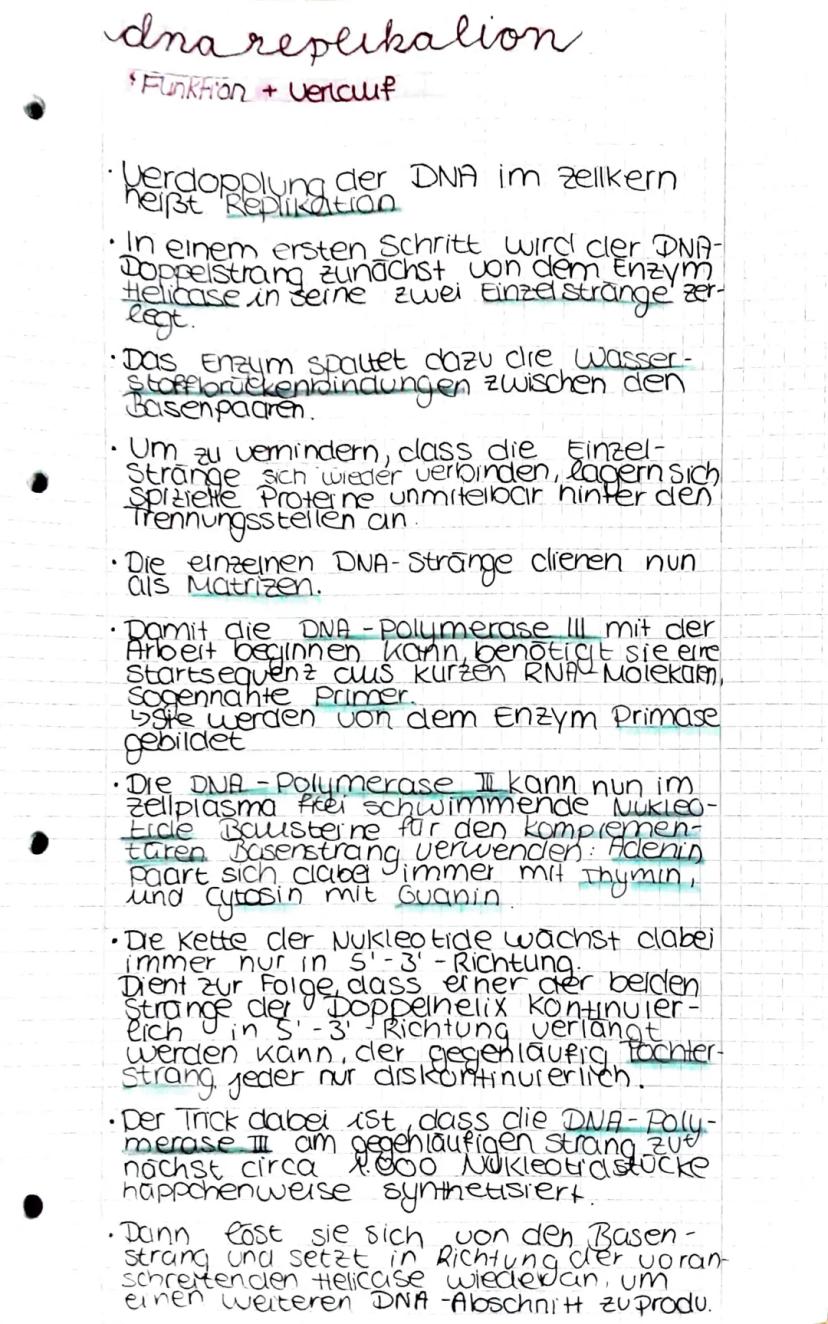 dna replikation
Funktion + verlauf
· Verdopplung der DNA im Zellkern
heißt Replikation
· In einem ersten Schritt wird der DNA-
Doppelstrang zunächst von dem Enzym
Helicase in seine zwei Einzelstränge zer-
legt.
· Das Enzym spaltet dazu die Wasser-
stoffbrückenbindungen zwischen den
Basenpaaren.
· Um zu verhindern, dass die Einzel-
stränge sich wieder verbinden, lagern sich
spizielle Proteine unmitelbar hinter den
Trennungsstellen an.
· Die einzelnen DNA-Stränge dienen nun
als Matrizen.
· Damit die DNA-Polymerase III mit der
Arbeit beginnen kann, benötigt sie eine
Startsequenz aus kurzen RNA-Molekäln,
sogennante Primer.
↳ Sie werden von dem Enzym Primase
gebildet
· Die DNA-Polymerase III kann nun im
Zellplasma frei schwimmende Nukleo-
tide Bausteine für den komplemen-
tären Basenstrang verwenden: Adenin
paart sich dabei immer mit Thymin,
und Cytosin mit Guanin
· Die Kette der Nukleotide wächst dabei
immer nur in 5'-3'-Richtung.
Dient zur Folge, dass einer der beiden
Stränge der Doppelhelix kontinuier-
lich in 5'-3'-Richtung verlängt
werden kann, der gegenläufig Tochter-
strang jeder nur diskontinuierlich.
· Der Trick dabei ist, dass die DNA-Poly-
merase III am gegenläufigen Strang zu
nächst circa 1.000 Nukleotidstücke
häppchenweise synthetisiert.
· Dann löst sie sich von den Basen-
strang und setzt in Richtung der voran-
schreitenden Helicase wieder an, um
einen weiteren DNA-Abschnitt zu produ.